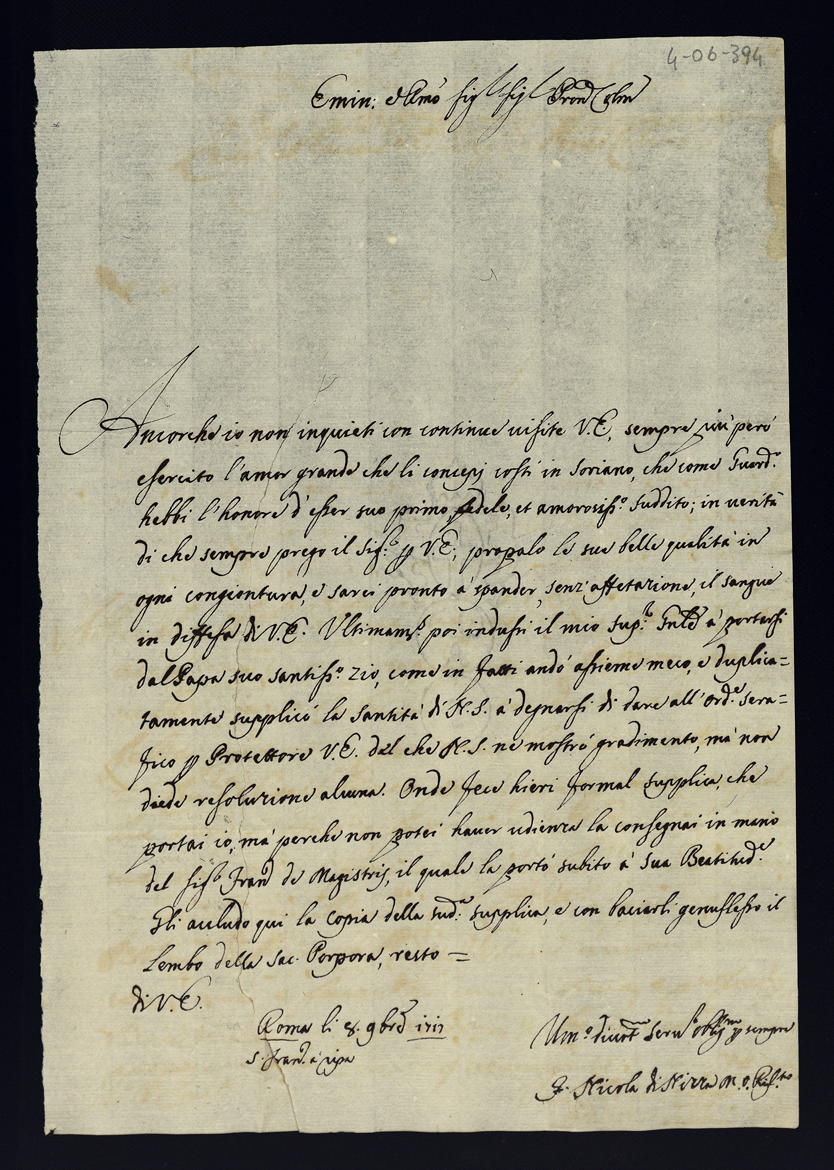 4-06-394
Emin: e Rmo Sigr Sigr Pron Colmo
Ancorche io non inquieti con continue visite V.E., sempre più però
esercito l'amor grande che li concepij costì in Soriano, che come Guard.o
hebbi l'honore d'esser suo primo, fedele, et amorosiss.o suddito; in verità
di che sempre prego il Sig.re p V.E., propalo le sue belle qualità in
ogni congiontura, e sarei pronto à spander, senz'affetazione, il sangue
in diffesa di V.E. Ultimam.te poi indussi il mio sup.re Gnle à portarsi
dal Papa suo santiss.o zio, come in fatti andò assieme meco, e duplica=
tamente supplicò la santità di N.S. à degnarsi di dare all'ord.e sera=
fico p Protettore V.E. del che N.S. ne mostrò gradimento, mà non
diede resoluzione alcuna. Onde fece hieri formal supplica, che
portai io, mà perche non potei haver udienza la consegnai in mano
del sig.r Fran.o de Magistris, il quale la portò subito à sua Beatitud.e
Gli accludo qui la copia della sud.a supplica, e con baciarli genuflesso il
lembo della sac. Porpora, resto =
di V.E.
Roma li 8. 9bre 1717
S. Fran.o à ripa
Um.o divot serv.re oblig.mo p sempre
F. Nicola di Nizza M.O. Rif.to